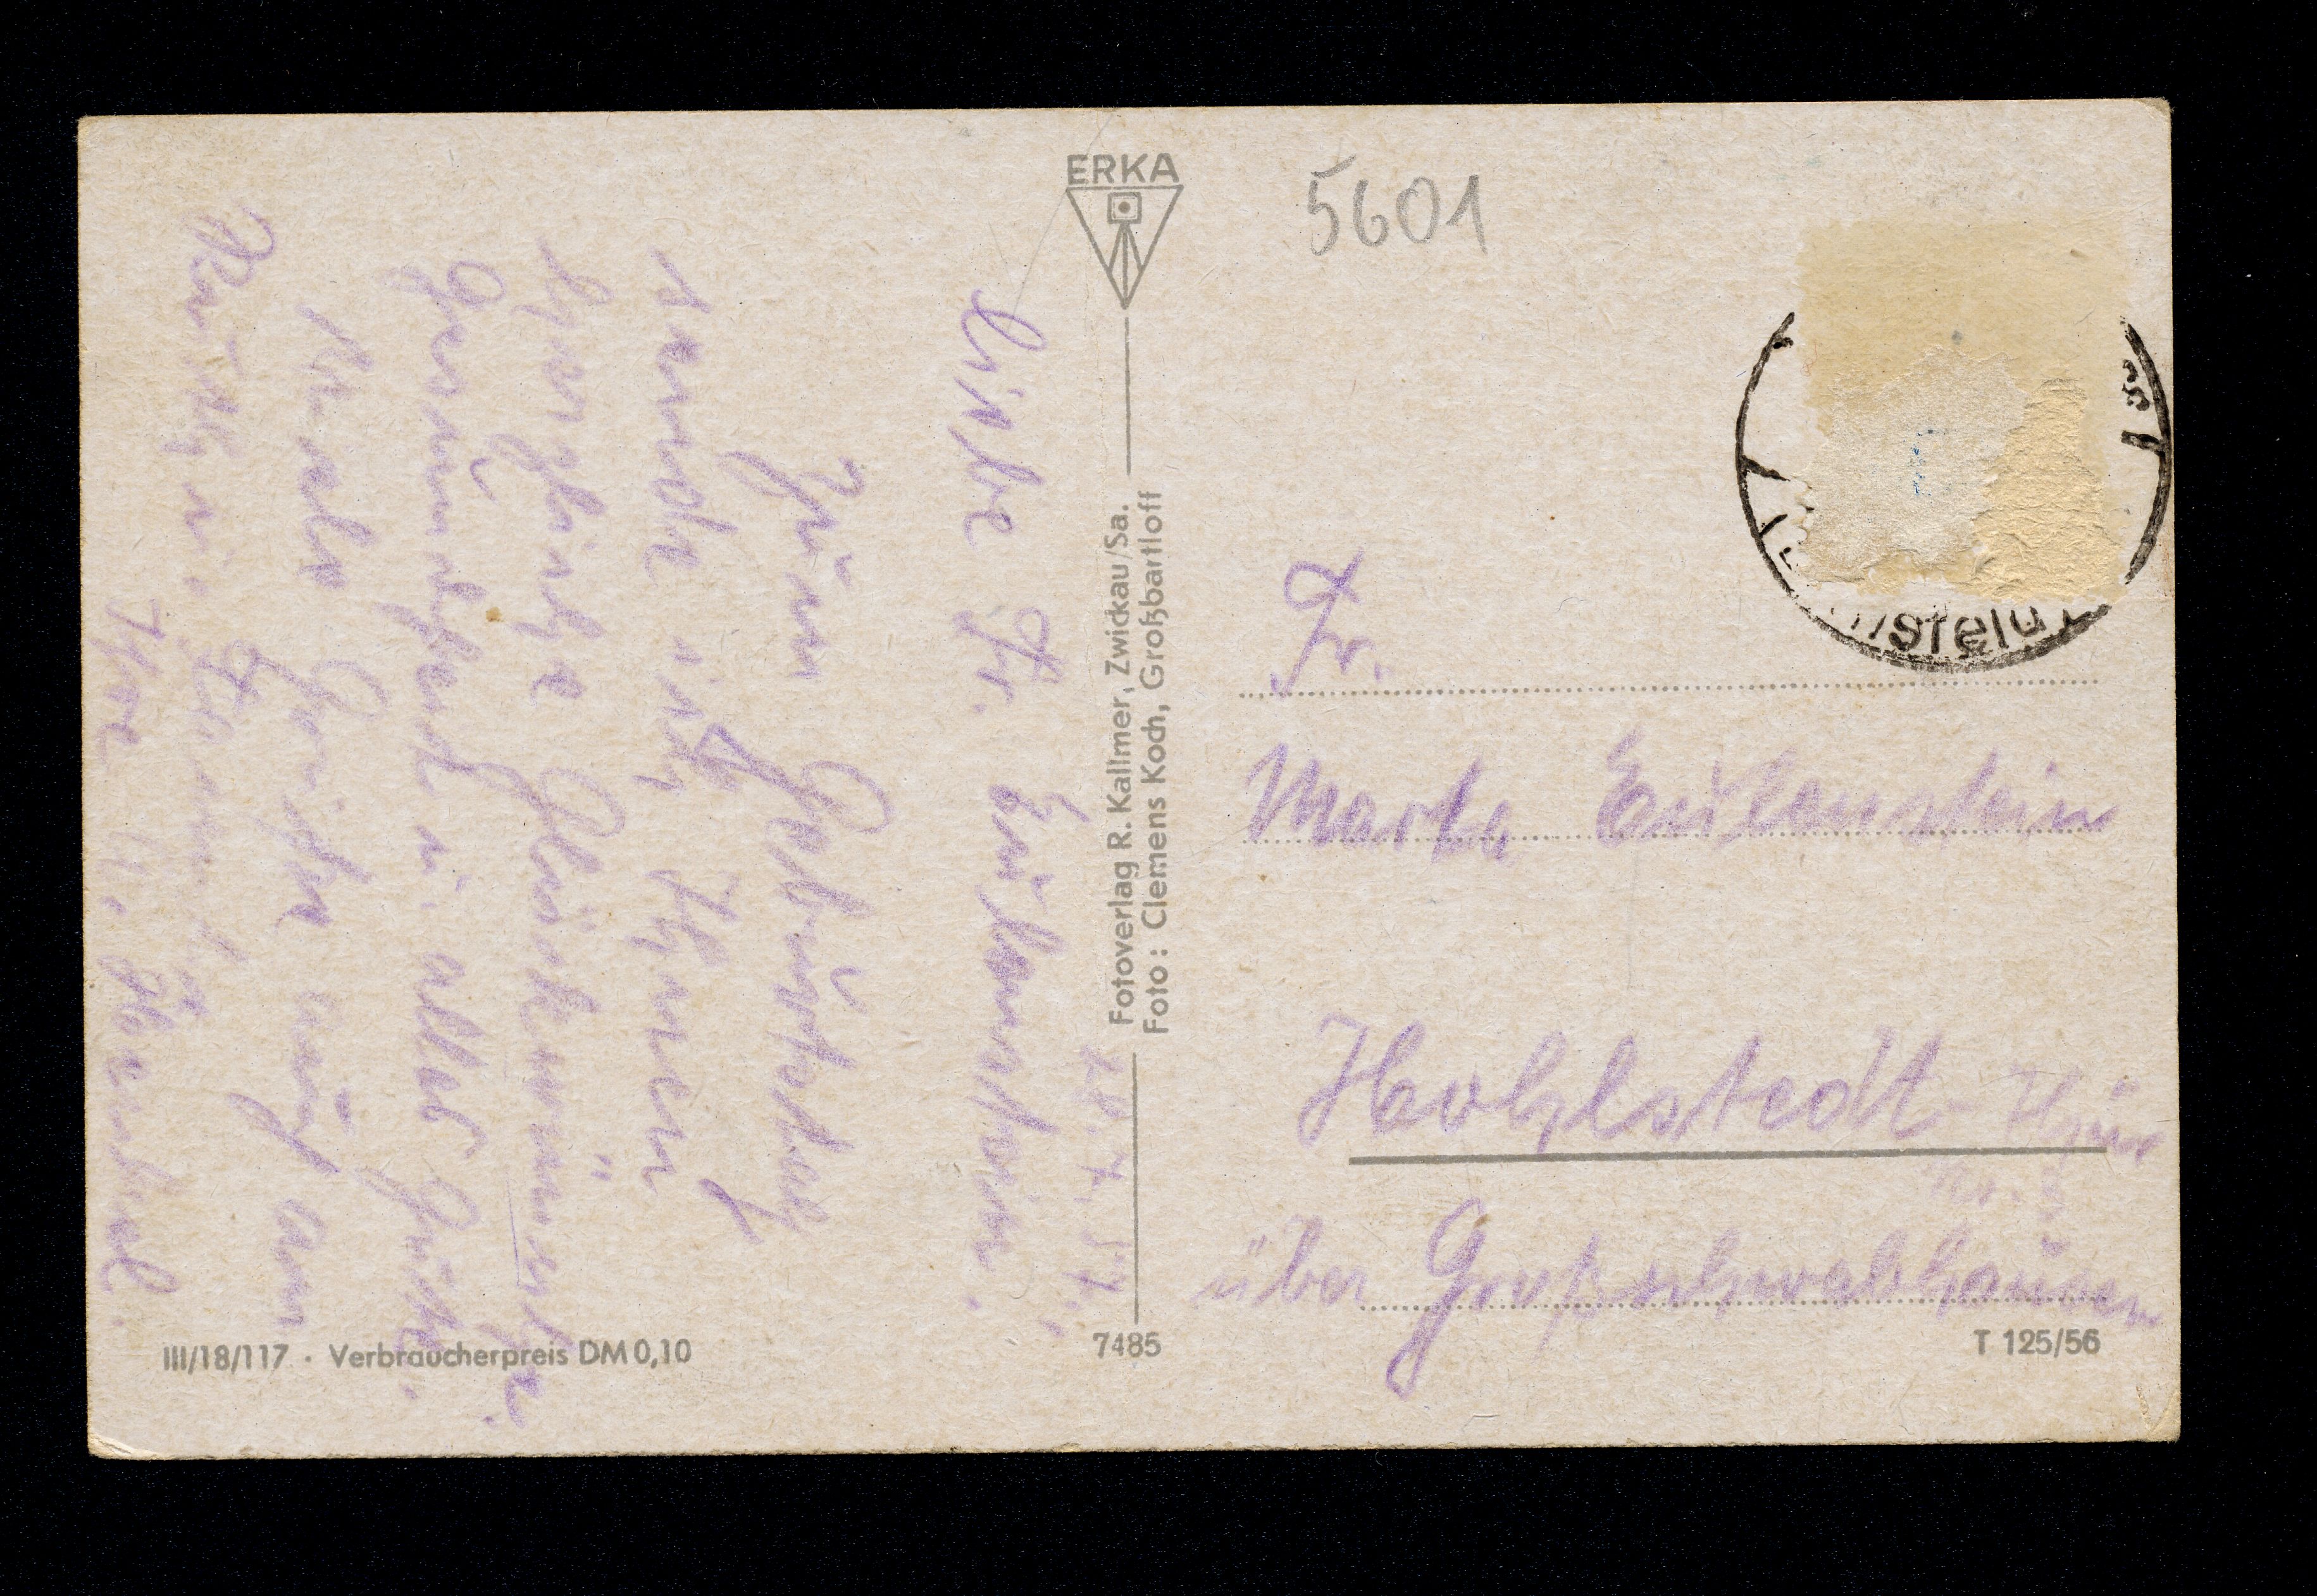 ERKA
5601
Fotoverlag R. Kallmer, Zwickau/Sa.
Foto: Clemens Koch, Großbartloff
7485
III/18/117 · Verbraucherpreis DM 0,10
T 125/56
Fr.
Marta Eulenstein
Hohlstedt Thür
über Großschwabhausen
Liebe Fr. Eulenstein.
Zum Geburtstag
sende ich Ihnen
herzliche Glückwünsche.
Gesundheit u. alles Gute.
Viele Grüße auch an